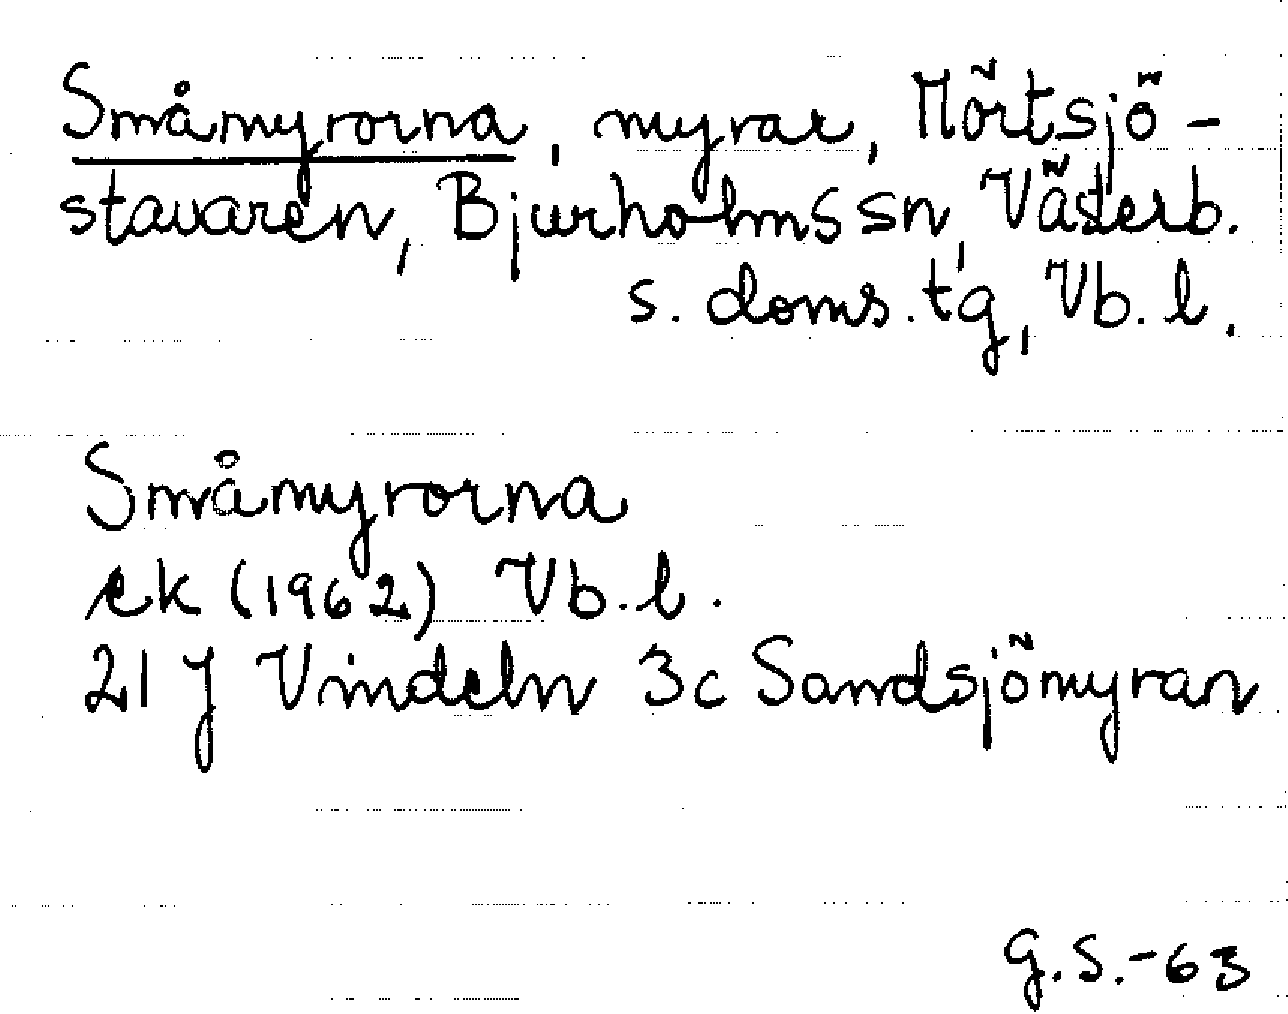 Småmyrorna, myrar, Mörtsjö-
stavaren, Bjurholms sn, Västerb.
s. doms. tg, Vb. l.
Småmyrorna
ek (1962) Vb. l.
21 J Vindeln 3c Sandsjömyran
G.S.-63